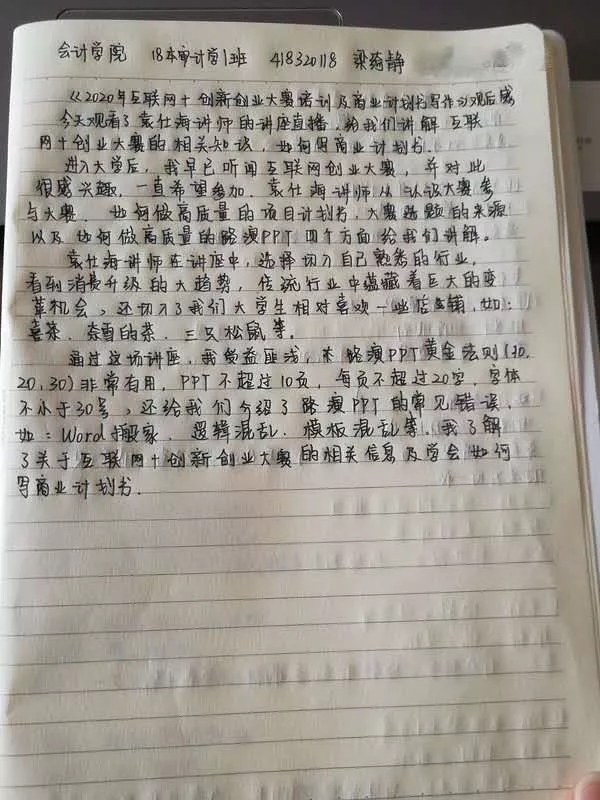 会计学院 18本审计学1班 418320118 梁琦静
《2020年互联网十创新创业大赛培训及商业计划书写作》观后感
今天观看了袁仕海讲师的讲座直播，给我们讲解互联
网十创业大赛的相关知识，如何写商业计划书.
进入大学后，我早已听闻互联网创业大赛，并对此
很感兴趣，一直希望参加.袁仕海讲师从认识大赛参
与大赛、如何做高质量的项目计划书，大赛选题的来源
以及如何做高质量的路演PPT四个方面给我们讲解。
袁仕海讲师在讲座中，选择切入自己熟悉的行业，
看到消费升级的大趋势，传统行业中蕴藏着巨大的变
革机会，还切入了我们大学生相对喜欢一些店铺，如：
喜茶、奈雪的茶、三只松鼠等。
通过这场讲座，我受益匪浅，本路演PPT黄金法则(10,
20,30)非常有用，PPT不超过10页，每页不超过20字，字体
不小于30号，还给我们介绍了路演PPT的常见错误，
如：Word搬家、逻辑混乱、模板混乱等，我了解
了关于互联网十创新创业大赛的相关信息及学会如何
写商业计划书.